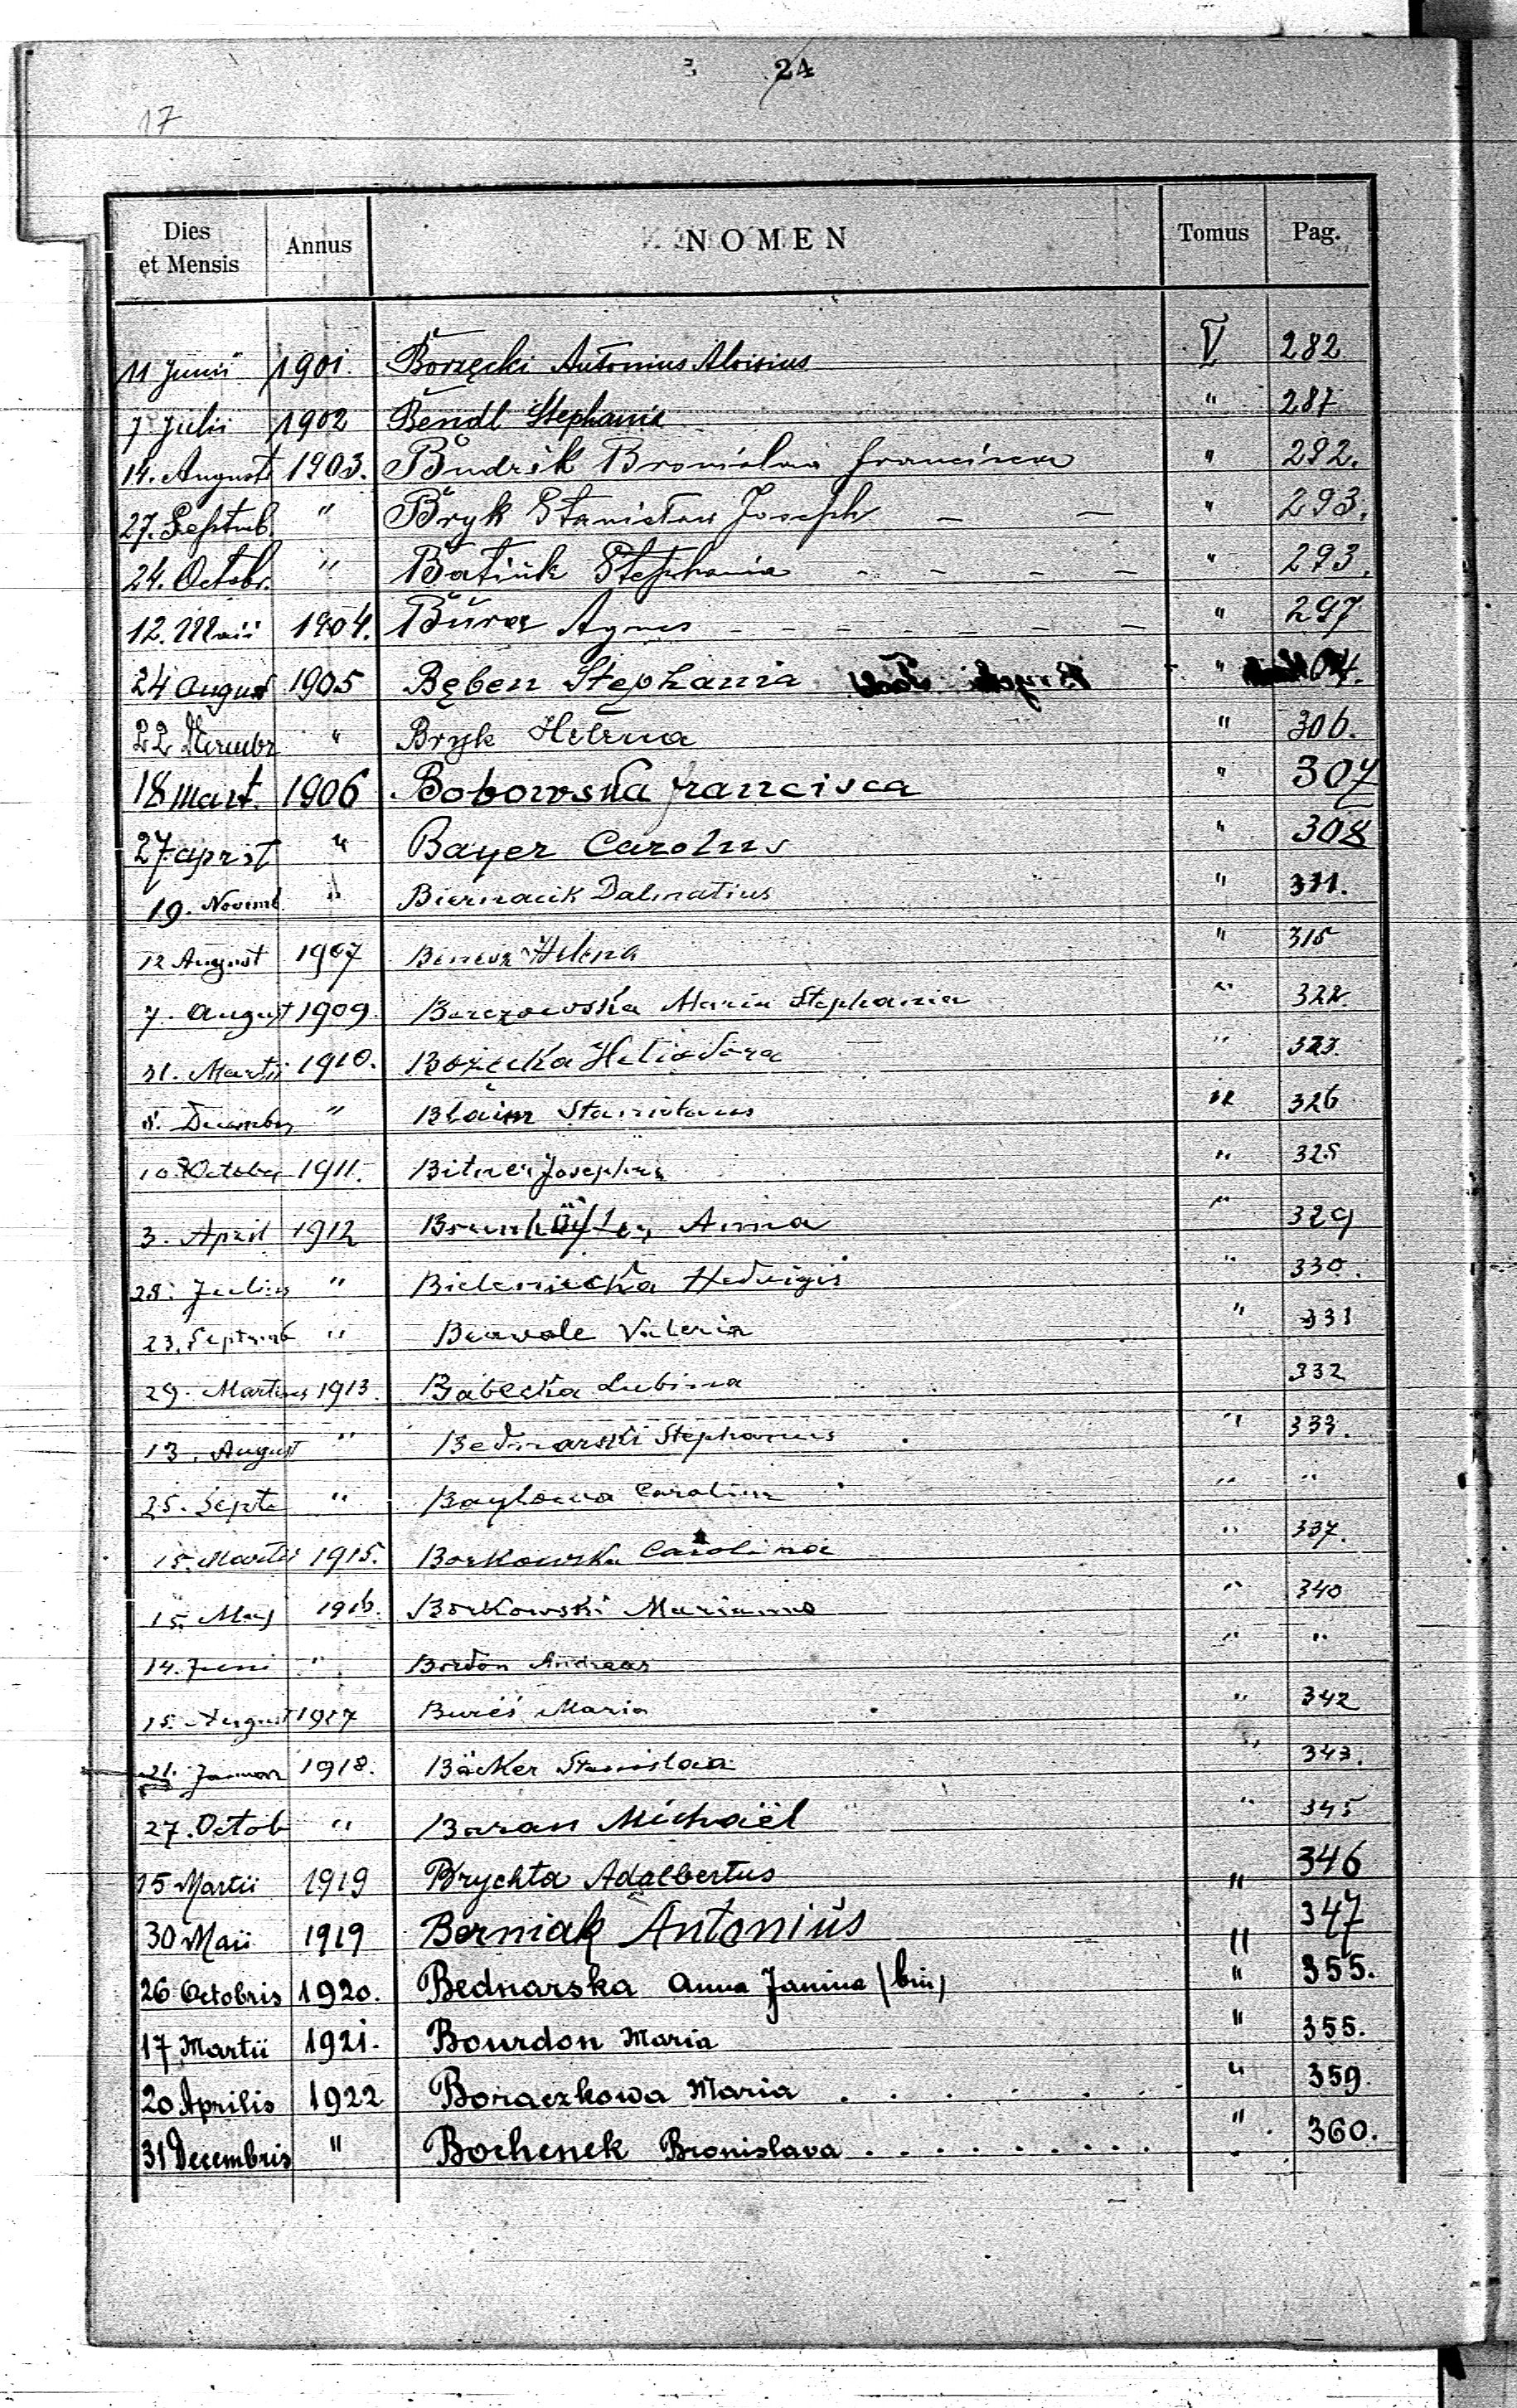 24
17
Dies et Mensis Annus NOMEN Tomus Pag.
11 Junii 1901. Borzęcki Antonius Aloisius V 282
7 Julii 1902 Bendl Stephania " 287
14. Augusti 1903. Budzik Bronislaa Francisca " 292.
27. Septmb. " Bryk Stanislaus Joseph — — " 293.
24. Octobr. " Batiuk Stephania - - - - " 293.
12. Maii 1904. Bura Agnes - - - - - - - " 297
24 August 1905 Bęben Stephania - " 04.
22 " Bryk Helena " 306.
18 Mart. 1906 Bobowska Francisca " 307
27 april " Bayer Carolus " 308
19. Novemb. " Biernacik Dalmatius " 311.
12 August 1907 Helena " 315
7. August 1909. Maria Stephania " 322.
31. Martii 1910. Bożęcka Heliodora " 323.
8. Decembr " Blaim Stanislaus " 326
10. October 1911. Bitner Josephus " 328
3. April 1912 Anna " 329
28. Julius " Hedvigis " 330.
23. Septemb " Valeria " 331
29. Martius 1913. Babecka Lubina 332
13. August " Bednarski Stephanus " 333.
25. Septe " Carolina " "
15. Martii 1915. Borkowska Carolina " 337.
15. Maj 1916. Borkowski Marianus " 340
14. Juni " Bordon Andreas " "
15. August 1917 Bureś Maria " 342
21. Januar 1918. Bäcker Stanislaa " 343.
27. Octob " Baran Michaël " 345
15 Martii 1919 Brychta Adalbertus " 346
30 Maii 1919 Berniak Antonius " 347
26 Octobris 1920. Bednarska Anna Janina (bin) " 355.
17 Martii 1921. Bourdon Maria " 355.
20 Aprilis 1922 Boraczkowa Maria . . . . . . " 359.
31 Decembris " Bochenek Bronislava . . . . . . . . . " 360.